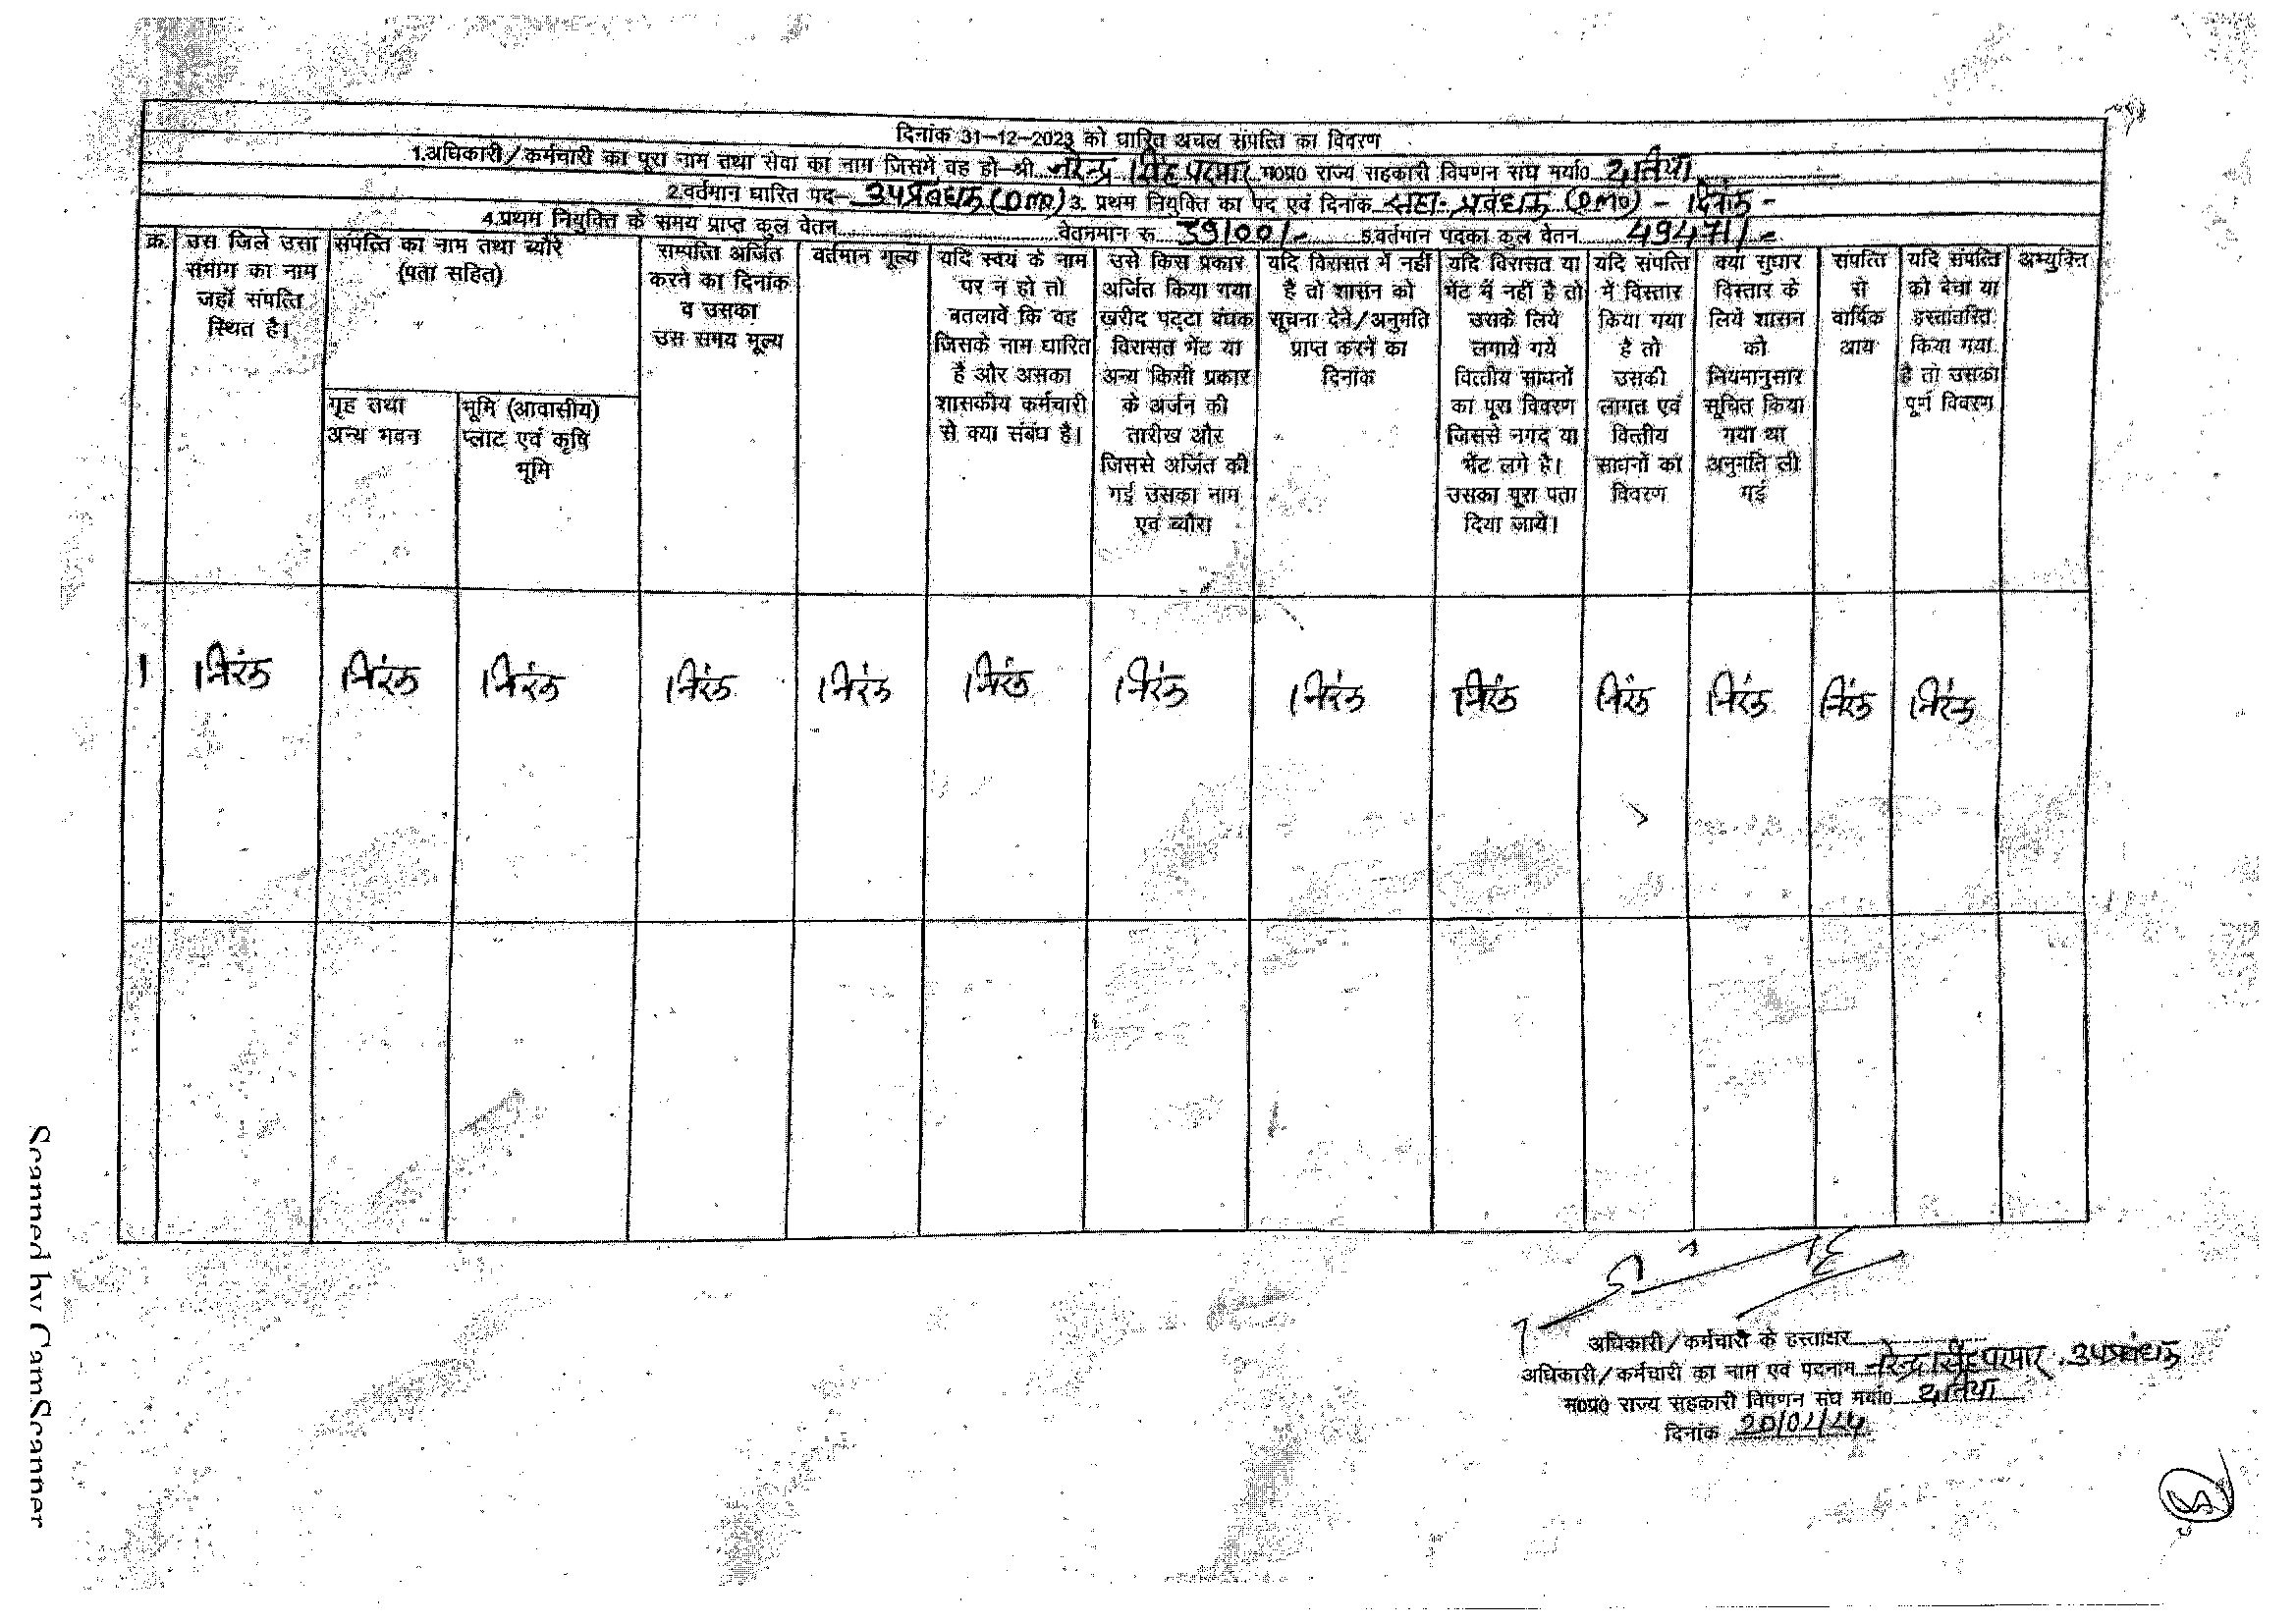 दिनांक 31-12-2023 को धारित अचल संपत्ति का विवरण
1.अधिकारी/कर्मचारी का पूरा नाम तथा सेवा का नाम जिसमें वह हो-श्री नरेन्द्र सिंह परमार म0प्र0 राज्य सहकारी विपणन संघ मर्या0 दतिया
2.वर्तमान धारित पद- उपप्रबंधक (DMO) 3. प्रथम नियुक्ति का पद एवं दिनांक सहा. प्रबंधक (DMO) -
4.प्रथम नियुक्ति के समय प्राप्त कुल वेतन वेतनमान रू 39100/- 5.वर्तमान पदका कुल वेतन 49471/-
क्र. उस जिले उसा समाग का नाम जहाँ संपत्ति स्थित है।
संपत्ति का नाम तथा ब्यौरे (पता सहित)
गृह तथा अन्य भवन
भूमि (आवासीय) प्लाट एवं कृषि भूमि
सम्पत्ति अर्जित करने का दिनांक व उसका उस समय मूल्य
वर्तमान मूल्य
यदि स्वयं के नाम पर न हो तो बतलावें कि वह जिसके नाम धारित है और असका शासकीय कर्मचारी से क्या संबंध है।
उसे किस प्रकार अर्जित किया गया खरीद पट्टा बंधक विरासत भेंट या अन्य किसी प्रकार के अर्जन की तारीख और जिससे अर्जित की गई उसका नाम एवं ब्यौरा
यदि विरासत में नहीं है तो शासन को सूचना देने/अनुमति प्राप्त करने का दिनांक
यदि विरासत या भेंट में नहीं है तो उसके लिये लगाये गये वित्तीय साधनों का पूरा विवरण जिससे नगद या भेंट लगे है। उसका पूरा पता दिया जाये।
यदि संपत्ति में विस्तार किया गया है तो उसकी लागत एवं वित्तीय साधनों का विवरण
क्या सुधार विस्तार के लिये शासन को नियमानुसार सूचित किया गया था अनुमति ली गई
संपत्ति से वार्षिक आय
यदि संपत्ति को बेचा या हस्तांतरित किया गया है तो उसका पूर्ण विवरण
अभ्युक्ति
1 निरंक निरंक निरंक निरंक निरंक निरंक निरंक निरंक निरंक निरंक निरंक निरंक निरंक
अधिकारी/कर्मचारी के हस्ताक्षर
अधिकारी/कर्मचारी का नाम एवं पदनाम नरेन्द्र सिंह परमार, उपप्रबंधक
म0प्र0 राज्य सहकारी विपणन संघ मर्या0 दतिया
दिनांक
Scanned by CamScanner